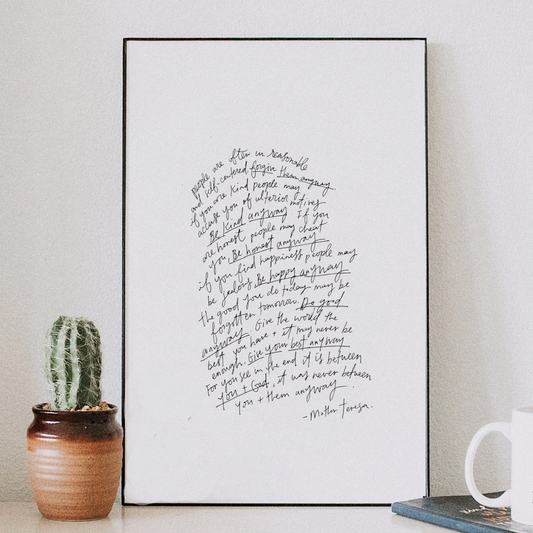 people are often unreasonable
and self-centered forgive them anyway
if you are kind people may
accuse you of ulterior motives
Be Kind anyway If you
are honest people may cheat
you Be honest anyway
if you find happiness people may
be jealous Be happy anyway
the good you do today may be
forgotten tomorrow. Do good
anyway Give the world the
best you have + it may never be
enough. Give your best anyway
For you see in the end it is between
you + God, it was never between
you + them anyway.
- Mother Teresa.